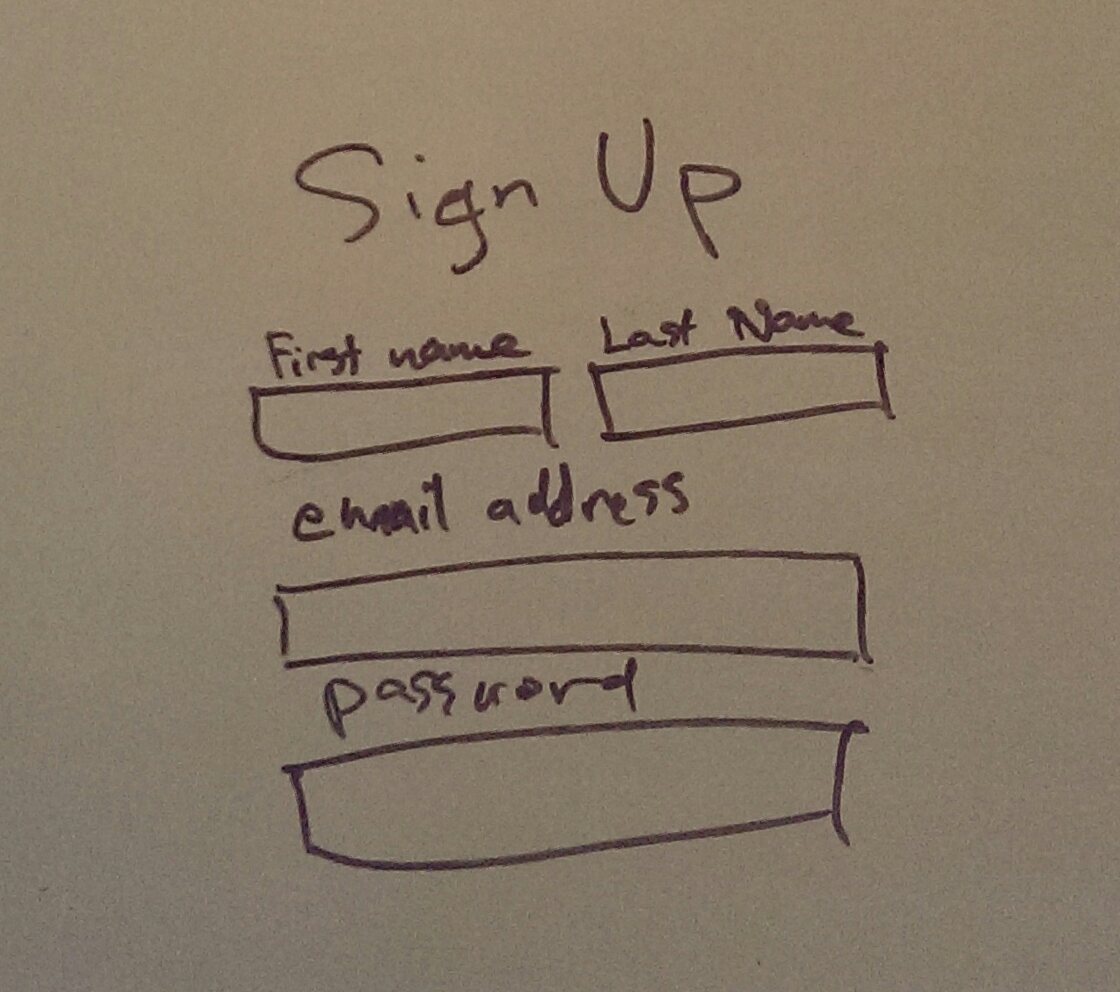 Sign Up
First name Last Name
email address
password